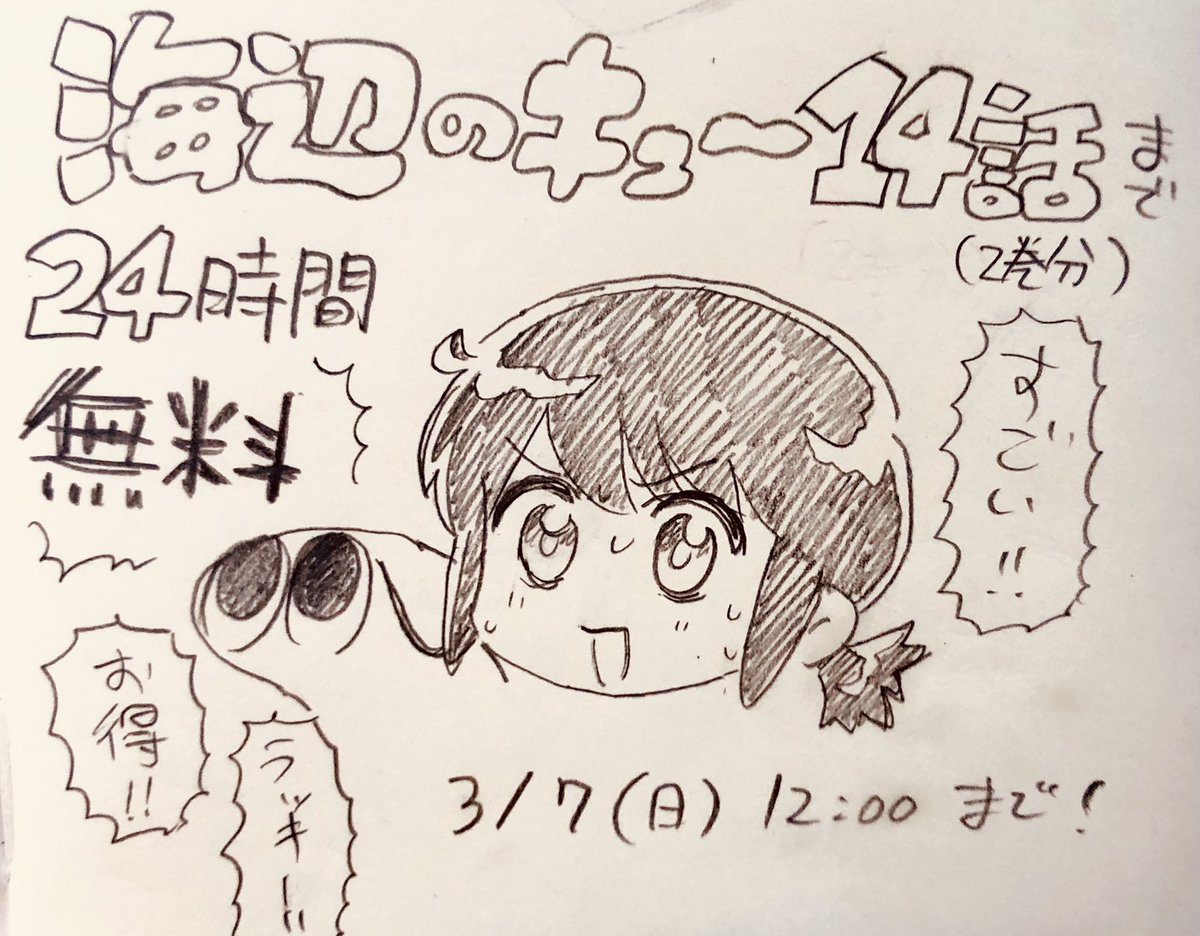 海辺のキュー14話まで
(2巻分)
24時間
無料
すごい!!
お得!!
ラッキー!!
3/7(日) 12:00 まで!